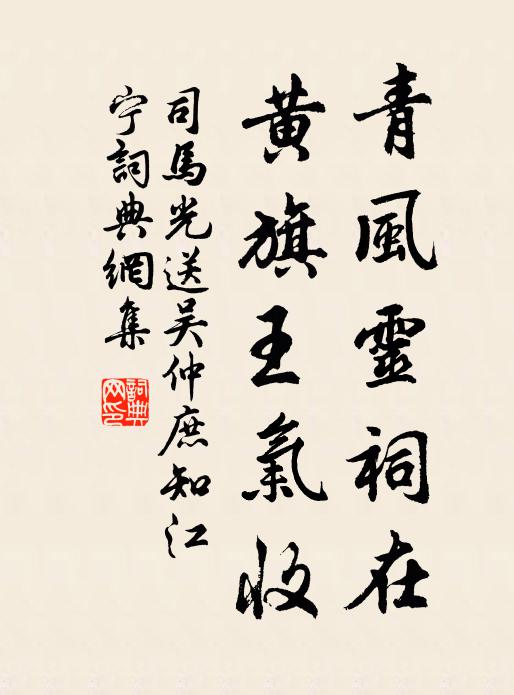 青風靈祠在
黃旗王氣收
司馬光送吴仲庶知江
宁詞典網集
詞典网印